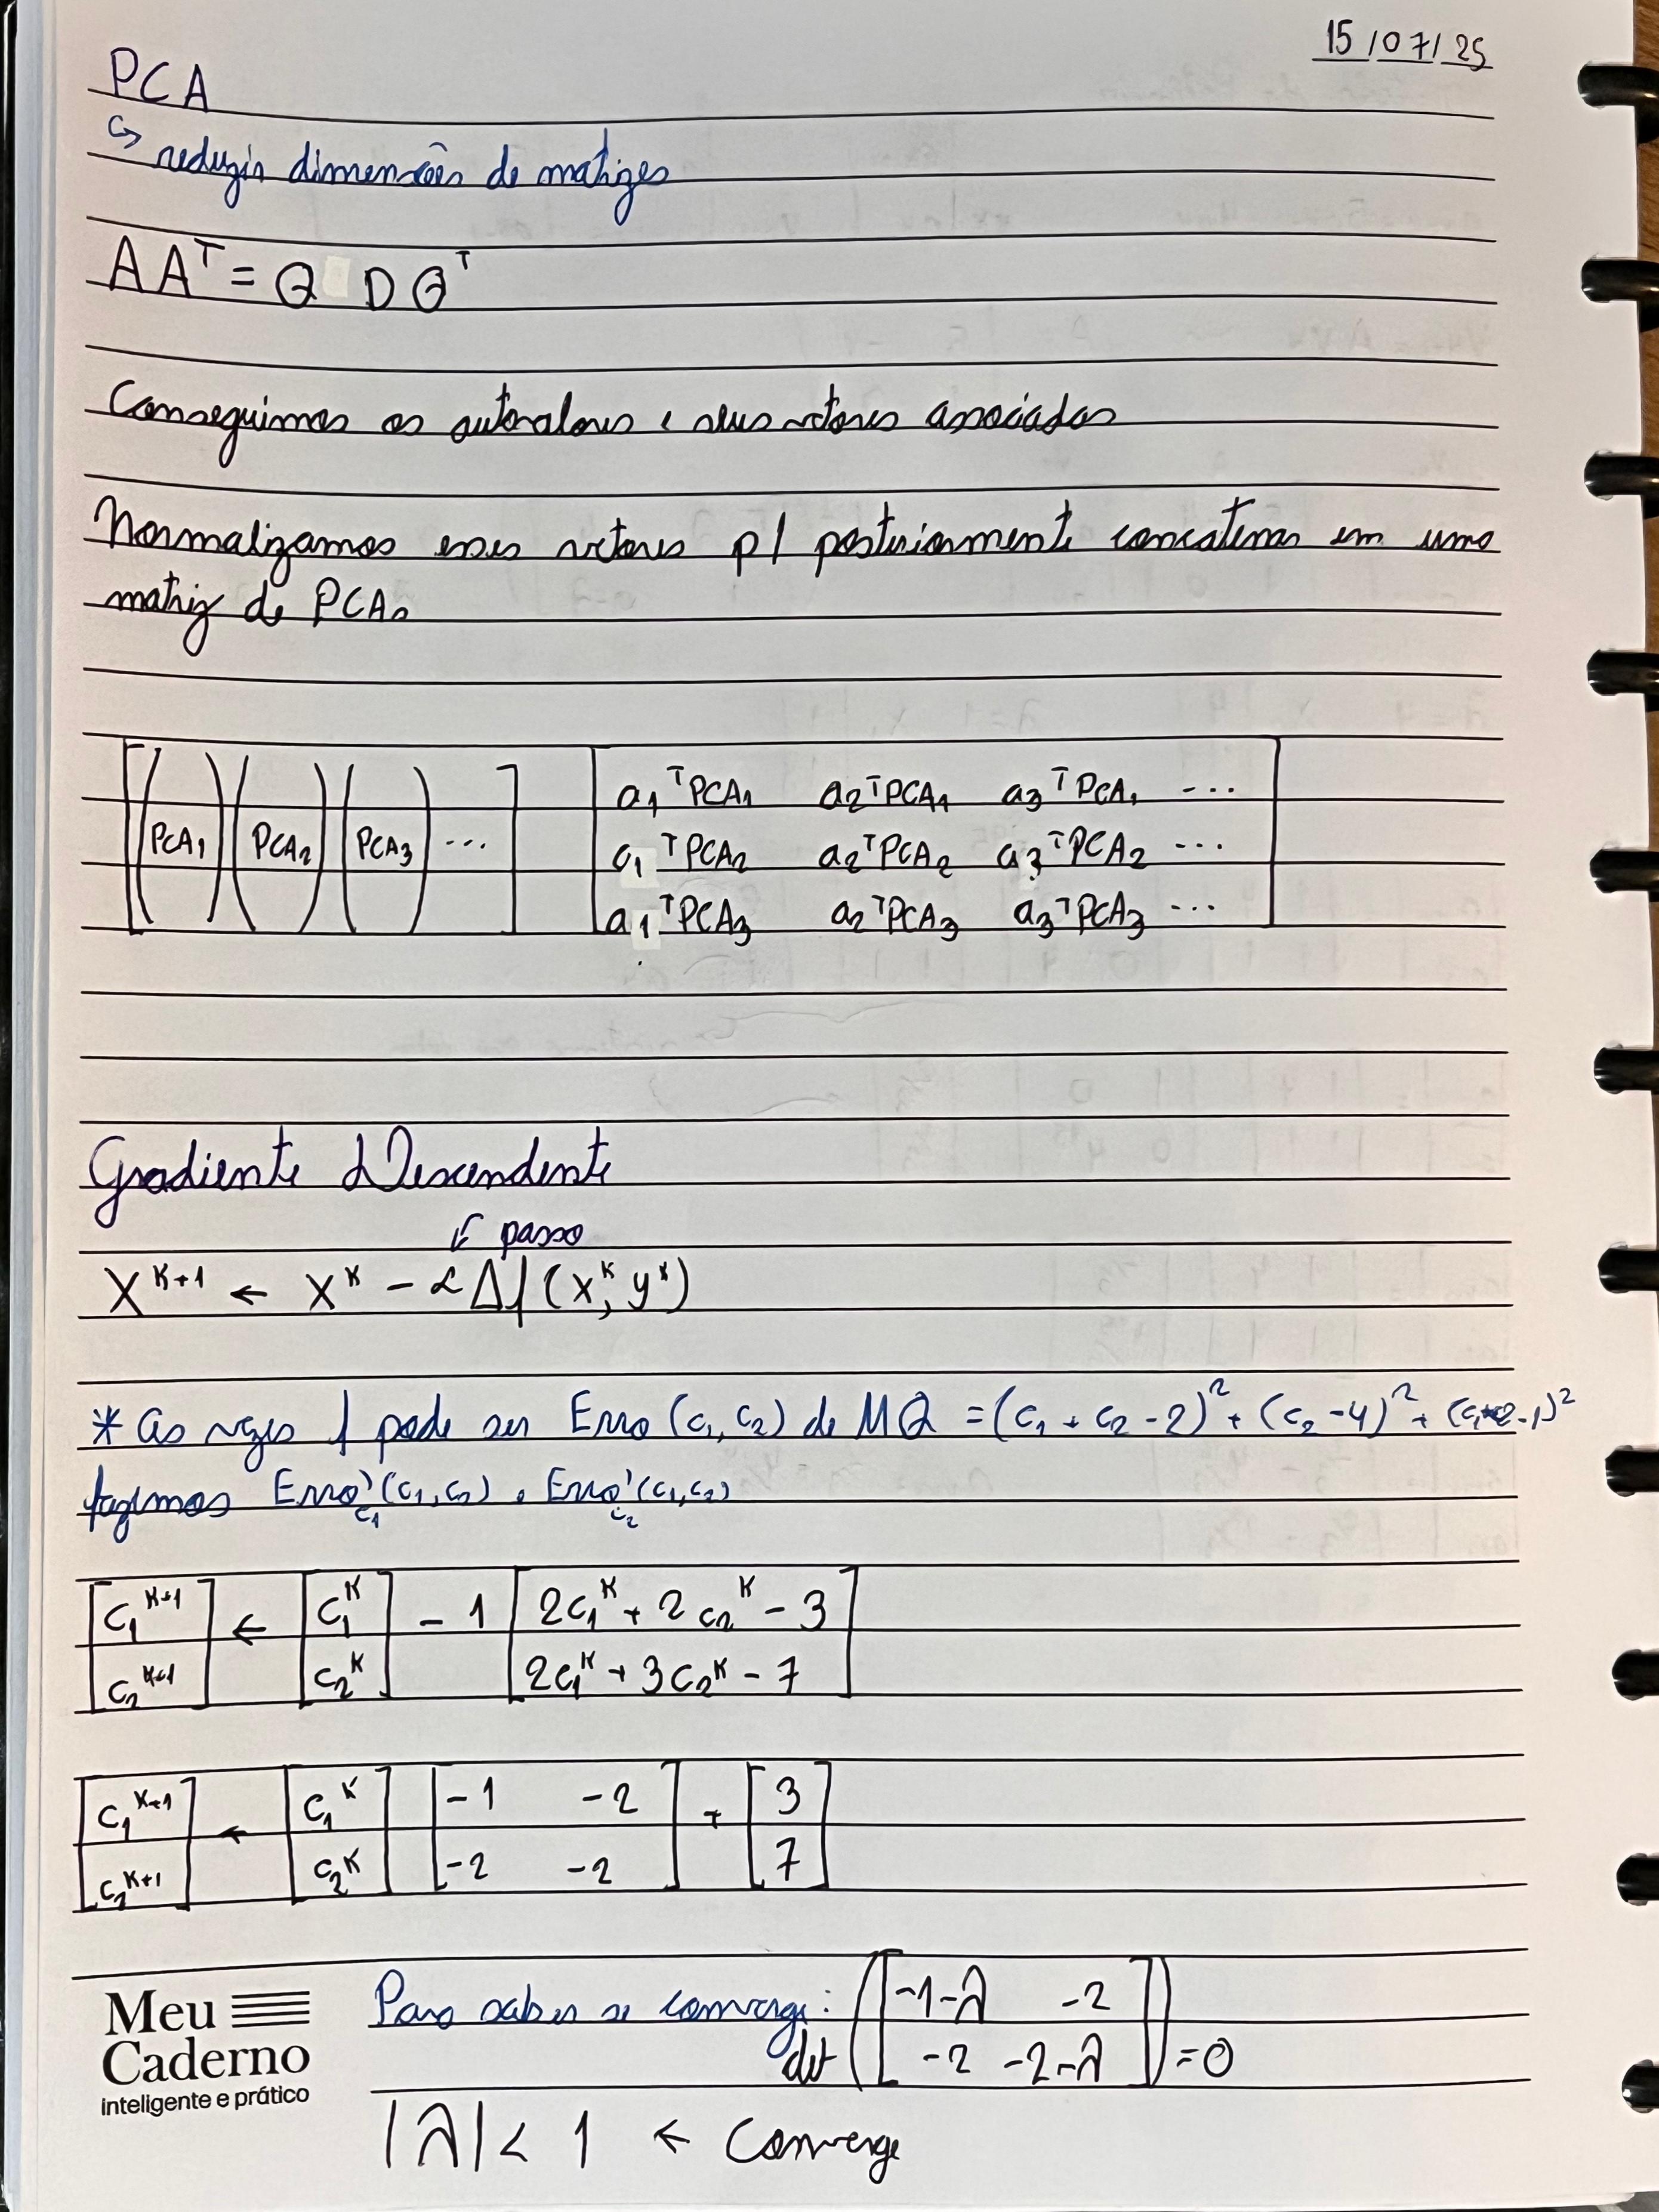 15/07/25
PCA
↳ reduzir dimensões de matrizes
AAᵀ = Q D Qᵀ
Conseguimos os autovalores e seus vetores associados
Normalizamos esses vetores p/ posteriormente concatenar em uma
matriz de PCAs
[(PCA₁) (PCA₂) (PCA₃) ...]
a₁ᵀPCA₁ a₂ᵀPCA₁ a₃ᵀPCA₁ ...
a₁ᵀPCA₂ a₂ᵀPCA₂ a₃ᵀPCA₂ ...
a₁ᵀPCA₃ a₂ᵀPCA₃ a₃ᵀPCA₃ ...
Gradiente Descendente
passo
Xᴷ⁺¹ ← Xᴷ - αΔf(xᴷ, yᴷ)
* às vezes f pode ser Erro(c₁, c₂) de MQ = (c₁ + c₂ - 2)² + (c₂ - 4)² + (c₁ -1)²
fazemos Erro'c₁(c₁, c₂) e Erro'c₂(c₁, c₂)
[c₁ᴷ⁺¹] ← [c₁ᴷ] - 1 [2c₁ᴷ + 2c₂ᴷ - 3]
[c₂ᴷ⁺¹] [c₂ᴷ] [2c₁ᴷ + 3c₂ᴷ - 7]
[c₁ᴷ⁺¹] ← [c₁ᴷ] [-1 -2] + [3]
[c₂ᴷ⁺¹] [c₂ᴷ] [-2 -2] [7]
Para saber se converge: det([-1-λ -2]
[-2 -2-λ]) = 0
|λ| < 1 ← Converge
Meu
Caderno
inteligente e prático